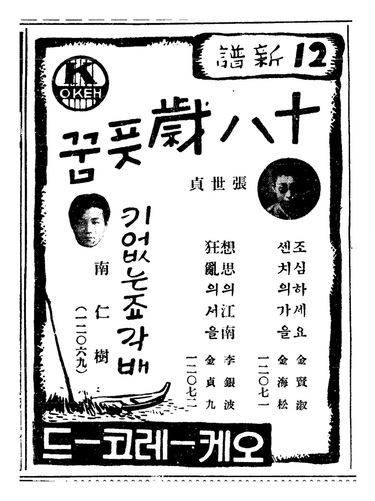 12新譜
K
OKEH
十八歲풋꿈
張世貞
조심하세요 金賢淑
센치의가을 金海松
一二〇七一
想思의江南 李銀波
狂亂의서울 金貞九
一二〇七二
키없는쪼각배
南仁樹
(一二〇六九)
오케ー레코ー드